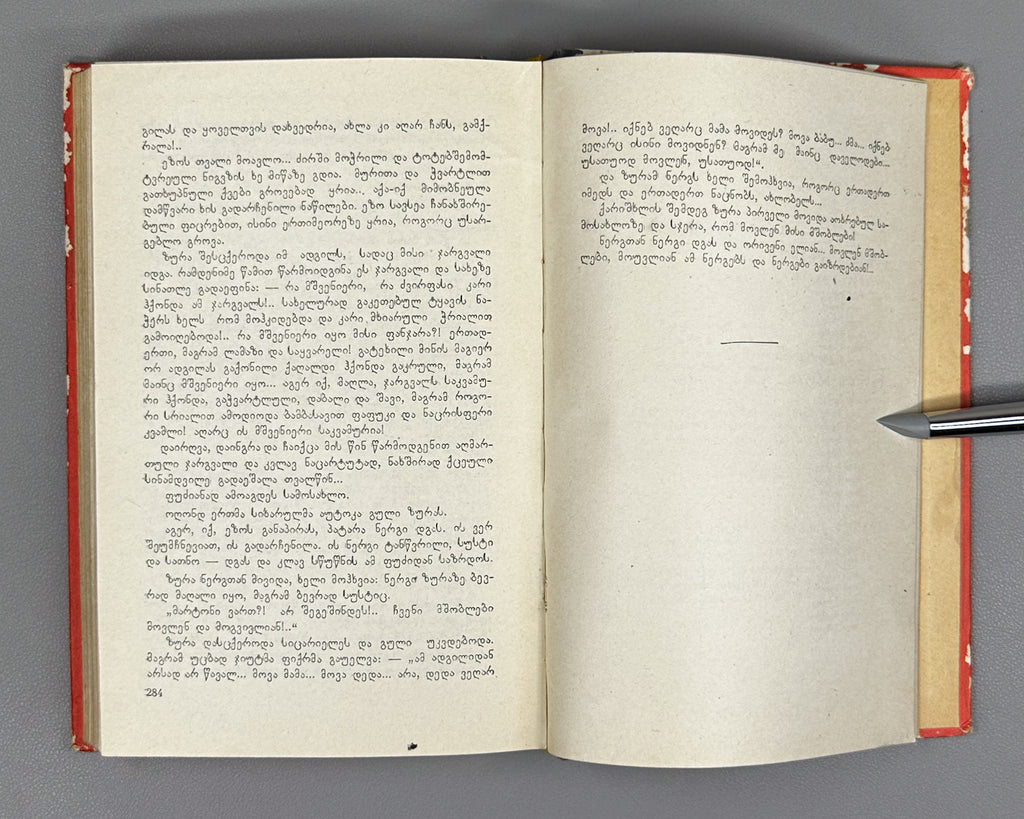 გილას და ყოველთვის დახვედრია, ახლა კი აღარ ჩანს, გამქ-
რალა!..
ეზოს თვალი მოავლო... ძირში მოჭრილი და ტოტებშემომ-
ტვრეული ნიგვზის ხე მიწაზე გდია. მურითა და ჭვარტლით
გათხუპნული ქვები გროვებად ყრია... აქა-იქ მიმობნეულა
დამწვარი ხის გადარჩენილი ნაწილები. ეზო სავსეა ჩანახშირე-
ბული ფიცრებით, ისინი ერთიმეორეზე ყრია, როგორც უსარ-
გებლო გროვა.
ზურა შესცქეროდა იმ ადგილს, სადაც მისი ჯარგვალი
იდგა. რამდენიმე წამით წარმოიდგინა ეს ჯარგვალი და სახეზე
სინათლე გადაეფინა: — რა მშვენიერი, რა ძვირფასი კარი
ჰქონდა ამ ჯარგვალს!.. სახელურად გაკეთებულ ტყავის ნა-
ჭერს ხელს რომ მოჰკიდებდა და კარი მხიარული ჭრიალით
გამოიღებოდა!.. რა მშვენიერი იყო მისი ფანჯარა?! ერთად-
ერთი, მაგრამ ლამაზი და საყვარელი! გატეხილი მინის მაგიერ
ორ ადგილას გაქონილი ქაღალდი ჰქონდა გაკრული, მაგრამ
მაინც მშვენიერი იყო... აგერ იქ, მაღლა, ჯარგვალს საკვამუ-
რი ჰქონდა, გაჭვარტლული, დაბალი და შავი, მაგრამ როგო-
რი სრიალით ამოდიოდა ბამბასავით ფაფუკი და ნაცრისფერი
კვამლი! აღარც ის მშვენიერი საკვამურია!
დაირღვა, დაინგრა და ჩაიქცა მის წინ წარმოდგენით აღმარ-
თული ჯარგვალი და კვლავ ნაცარტუტად, ნახშირად ქცეული
სინამდვილე გადაეშალა თვალწინ...
ფუძიანად ამოაგდეს სამოსახლო.
ოღონდ ერთმა სიხარულმა აუტოკა გული ზურას.
აგერ, იქ, ეზოს განაპირას, პატარა ნერგი დგას. ის ვერ
შეუმჩნევიათ, ის გადარჩენილა. ის ნერგი ტანწვრილი, სუსტი
და სათნო — დგას და კლავ სწუწნის ამ ფუძიდან საზრდოს.
ზურა ნერგთან მივიდა, ხელი მოჰხვია: ნერგი ზურაზე ბევ-
რად მაღალი იყო, მაგრამ ბევრად სუსტიც.
„მარტონი ვართ?! არ შეგეშინდეს!.. ჩვენი მშობლები
მოვლენ და მოგვივლიან!..“
ზურა დასცქეროდა სიცარიელეს და გული უკვდებოდა.
მაგრამ უცბად ჯიუტმა ფიქრმა გაუელვა: — „ამ ადგილიდან
არსად არ წავალ... მოვა მამა... მოვა დედა... არა, დედა ვეღარ
284
მოვა!.. იქნებ ვეღარც მამა მოვიდეს? მოვა ბაბუ... ძმა... იქნებ
ვეღარც ისინი მოვიდნენ? მაგრამ მე მაინც დაველოდები...
უსათუოდ მოვლენ, უსათუოდ!“.
და ზურამ ნერგს ხელი შემოჰხვია, როგორც ერთადერთ
იმედს და ერთადერთ ნაცნობს, ახლობელს...
ქარიშხლის შემდეგ ზურა პირველი მოვიდა აოხრებულ სა-
მოსახლოზე და სჯერა, რომ მოვლენ მისი მშობლები!
ნერგთან ნერგი დგას და ორივენი ელიან... მოვლენ მშობ-
ლები, მოუვლიან ამ ნერგებს და ნერგები გაიზრდებიან!..